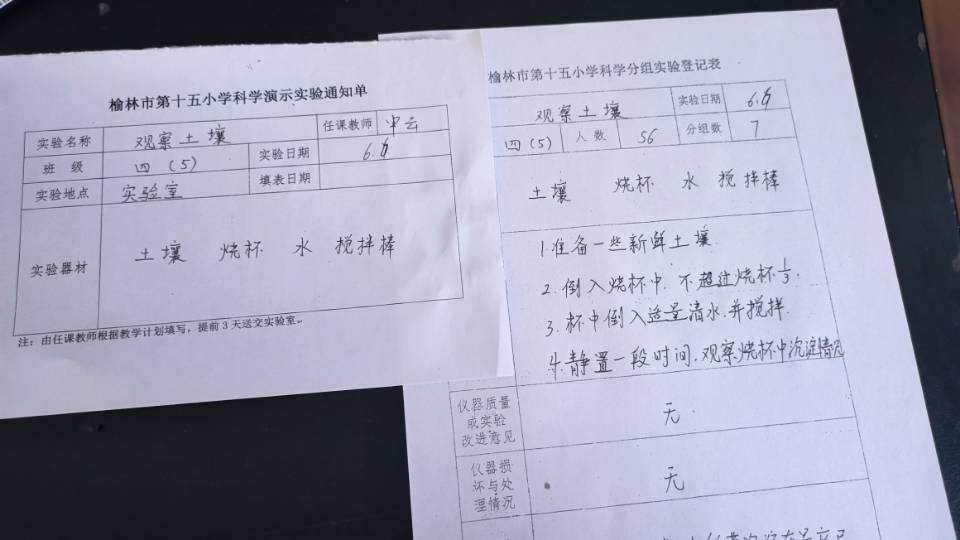 榆林市第十五小学科学演示实验通知单
实验名称 观察土壤 任课教师
班 级 四（5） 实验日期
实验地点 实验室 填表日期
实验器材 土壤 烧杯 水 搅拌棒
注：由任课教师根据教学计划填写，提前3天送交实验室。
榆林市第十五小学科学分组实验登记表
观察土壤 实验日期
四（5） 人数 56 分组数 7
土壤 烧杯 水 搅拌棒
1.准备一些新鲜土壤
2.倒入烧杯中.不超过烧杯1/3.
3.杯中倒入适量清水.并搅拌.
4.静置一段时间.观察烧杯中沉淀情况
仪器质量
或实验
改进意见
无.
仪器损
坏与处
理情况
无